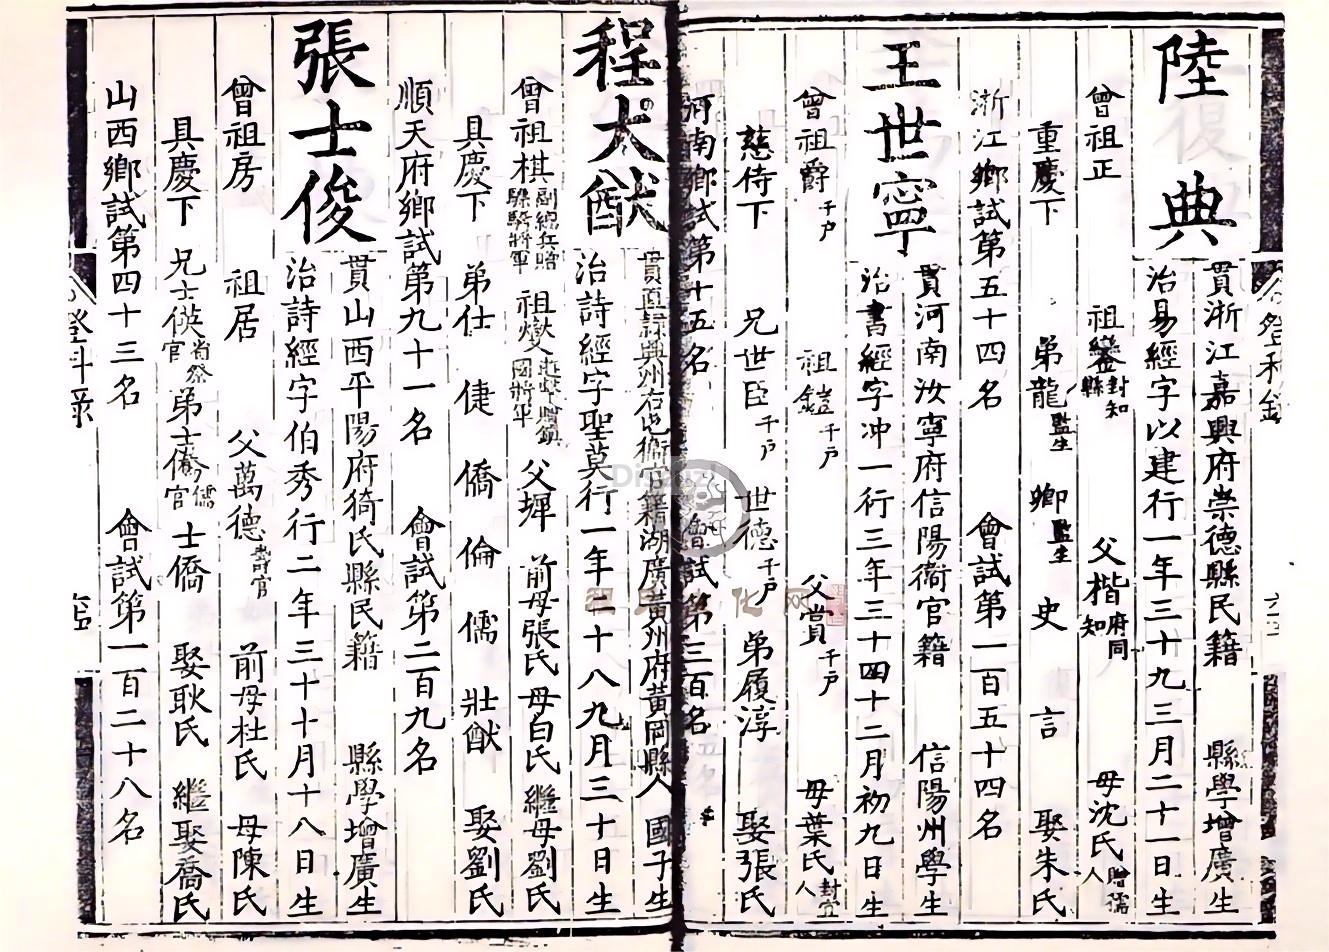 陸典
貫浙江嘉興府崇德縣民籍 縣學增廣生
治易經字以建行一年三十九三月二十一日生
曾祖正 祖鑾封知縣 父楷府同知 母沈氏贈孺人
重慶下 弟龍監生 卿監生 史 言 娶朱氏
浙江鄉試第五十四名 會試第一百五十四名
王世寧
貫河南汝寧府信陽衞官籍 信陽州學生
治書經字冲一行三年三十四十二月初九日生
曾祖爵千户 祖鎧千户 父賞千户 母葉氏封宜人
慈侍下 兄世臣千户 世德千户 弟履淳 娶張氏
河南鄉試第十五名 會試第三百名
程大猷
貫直隸 州右屯衞官籍湖廣黃州府黃岡縣人 國子生
治詩經字聖莫行一年二十八九月三十日生
曾祖棋副總兵贈驃騎將軍 祖燮 贈鎮國將軍 父墀 前母張氏 母白氏 繼母劉氏
具慶下 弟仕 倢 僑 倫 儒 壯猷 娶劉氏
順天府鄉試第九十一名 會試第二百九名
張士俊
貫山西平陽府猗氏縣民籍 縣學增廣生
治詩經字伯秀行二年三十十月十八日生
曾祖房 祖居 父萬德壽官 前母杜氏 母陳氏
具慶下 兄士偀省祭官 弟士儒官 士僑 娶耿氏 繼娶喬氏
山西鄉試第四十三名 會試第一百二十八名
登科錄